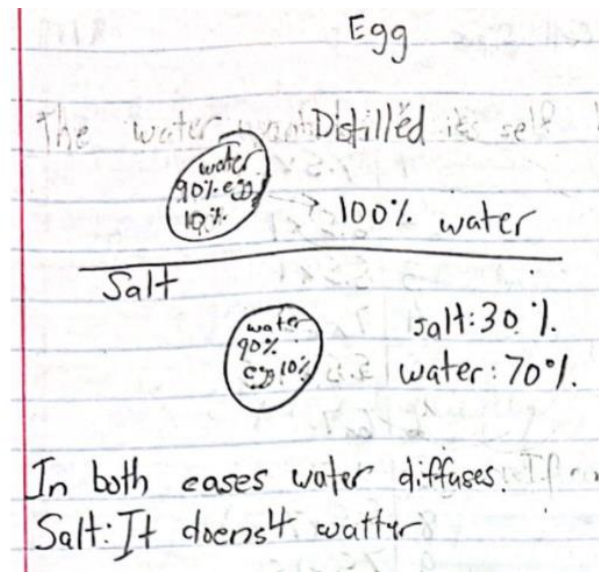 Egg
The water Distilled its self
water
90% egg
10%
100% water
Salt
water
90%
egg 10%
salt: 30%.
water: 70%.
In both cases water diffuses.
Salt: It doens4 wattur